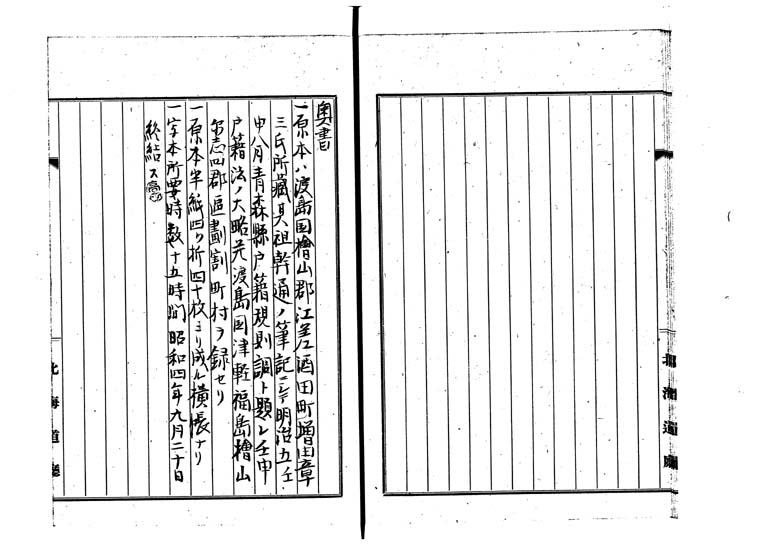 奥書
一原本ハ渡島国檜山郡江差酒田町増田章
三氏所蔵其祖幹通ノ筆記ニシテ明治五壬
申八月青森縣戸籍規則調ト題シ壬申
戸籍法ノ大略并渡島国津軽福島檜山
爾志四郡區劃割町村ヲ録セリ
一原本半紙四ツ折四十枚ヨリ成ル横帳ナリ
一字本所要時数十五時間昭和四年九月二十日
終結ス
北海道廳
北海道廳